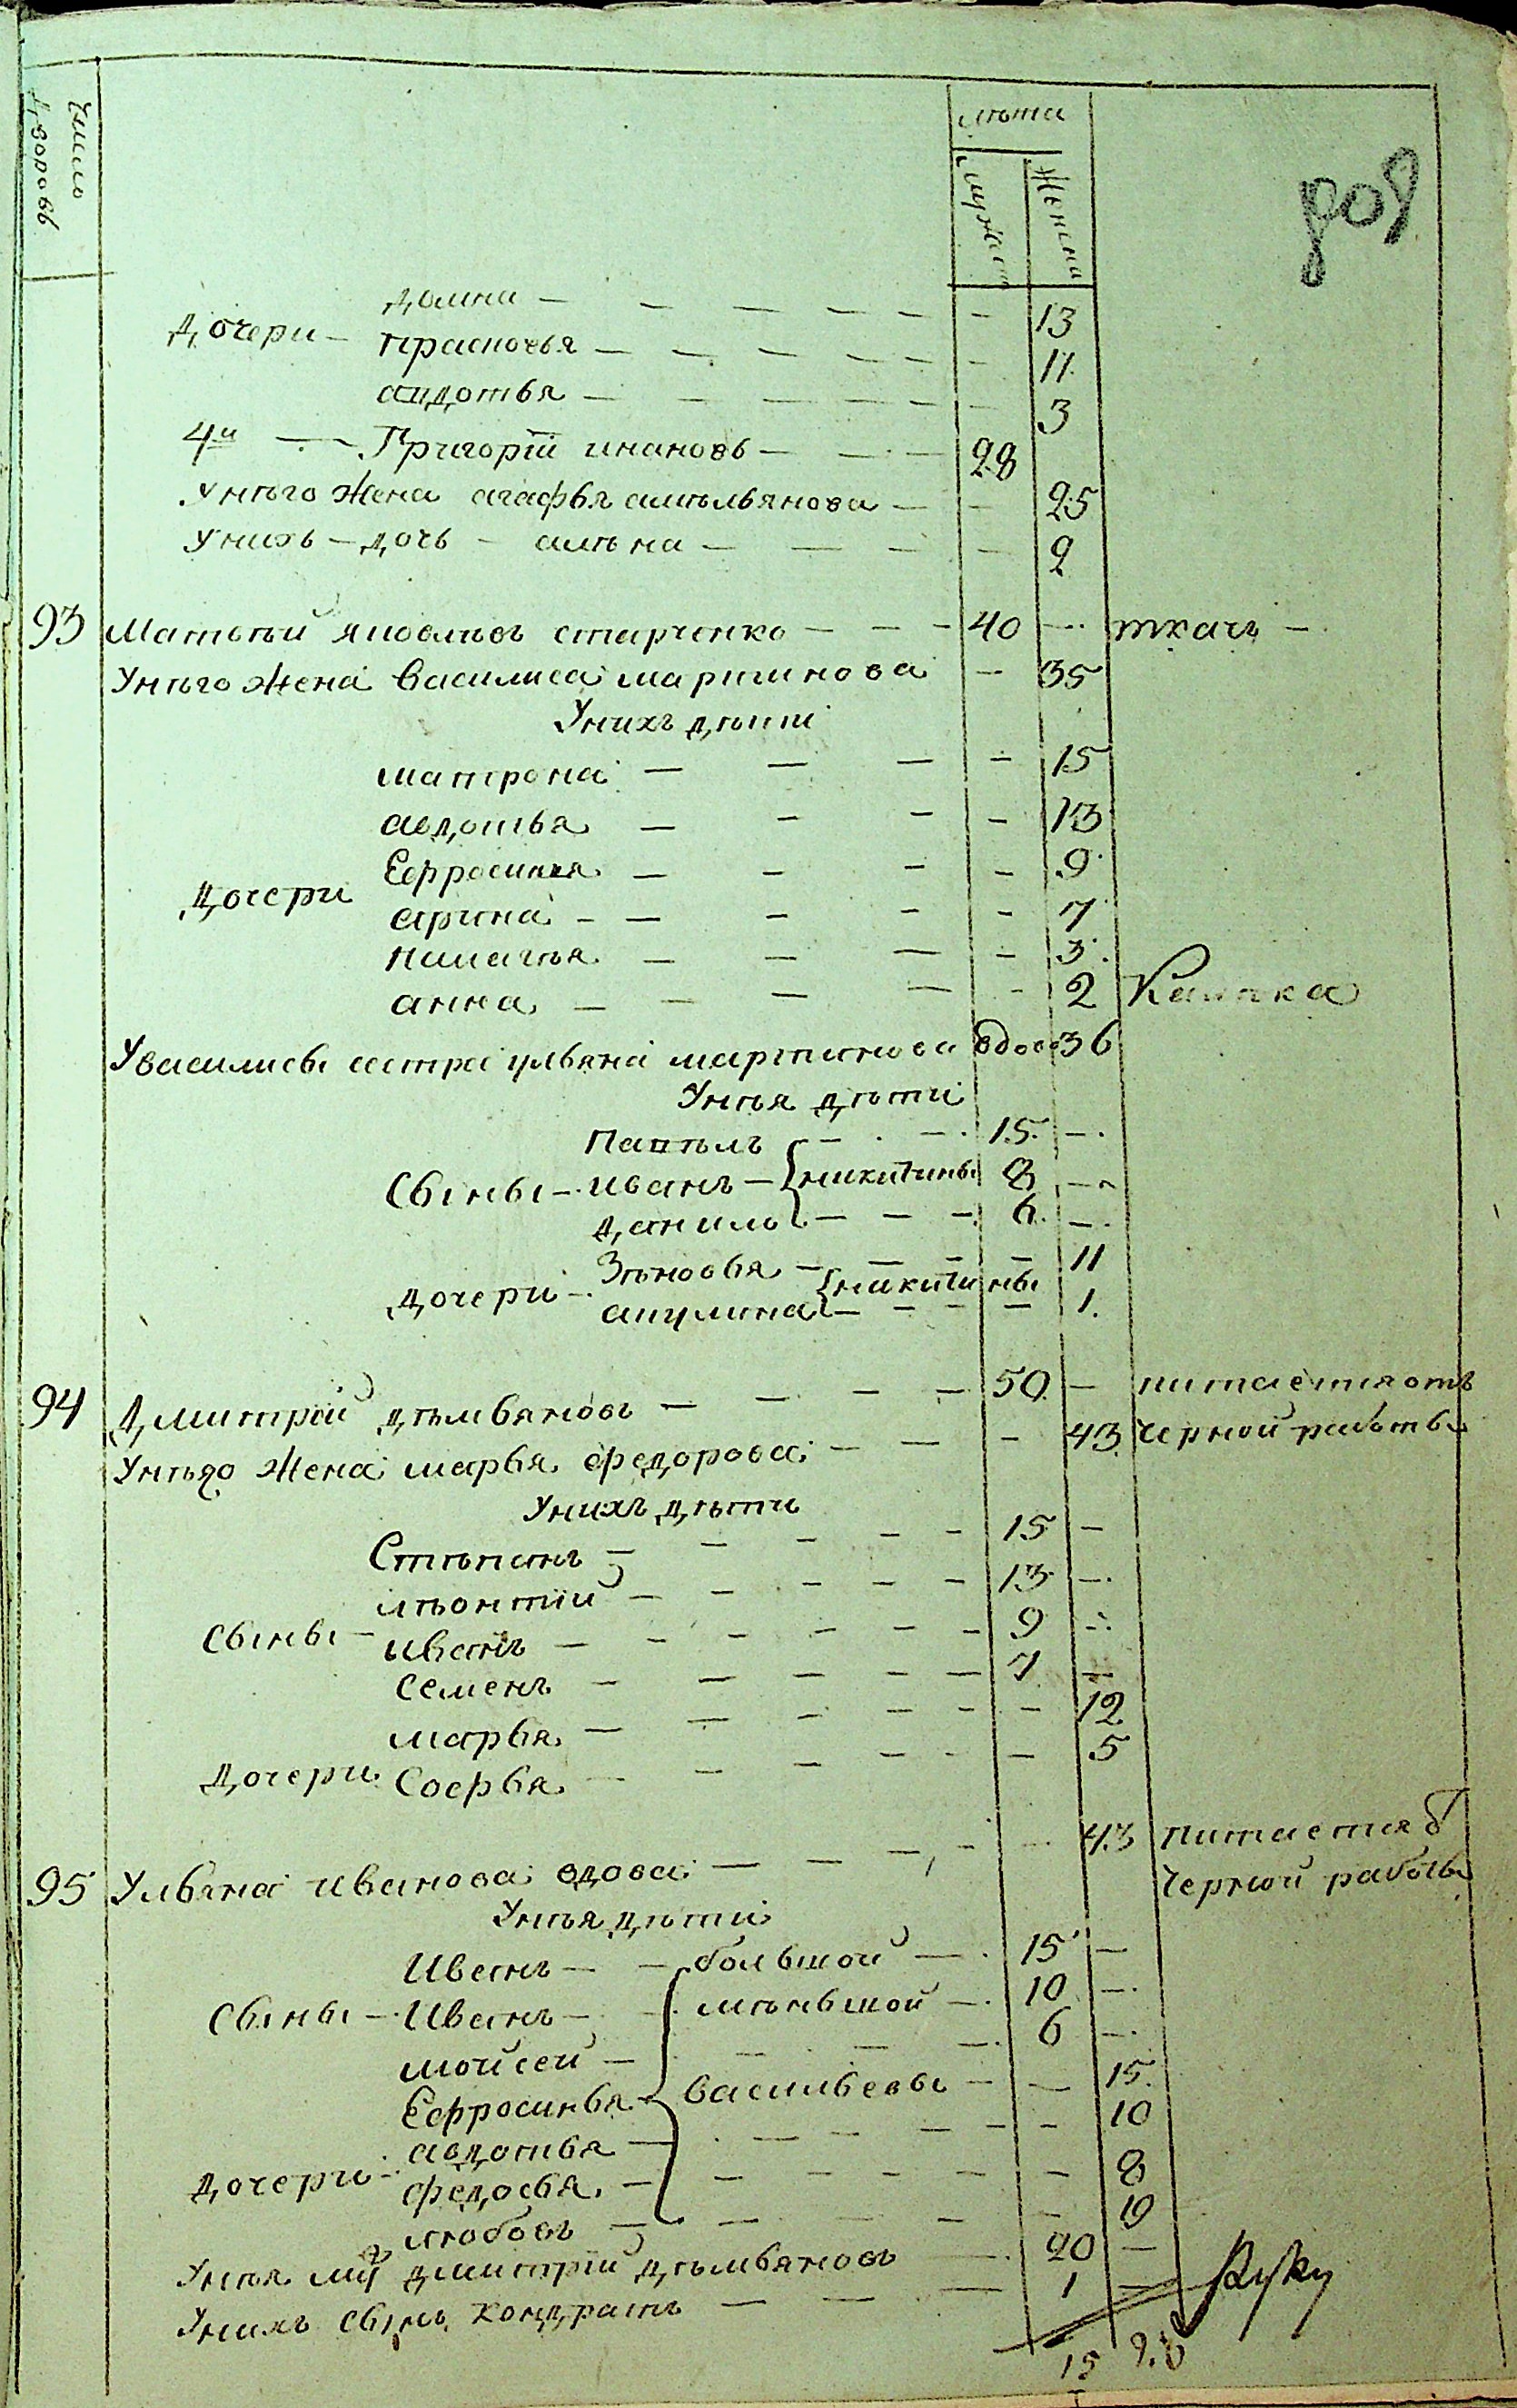 Число дворовъ
лѣта
мужеск
женска
домна — 13
Дочери — прасковья — 11
авдотья — 3
4й — Григорій ивановъ — 28
Унѣго жена агафья амѣльянова — 25
Унихъ — дочь — алѣна — 2
93 Матвѣй яковлѣвъ старченко — 40 — ткачь —
Унѣго жена василиса мартинова — 35
Унихъ дѣти
матрона — 15
авдотья — 13
Ефросинья — 9
Дочери арина — 7
пилагѣя — 3
анна — 2
Увасилисы сестра ульяна мартинова вдова 36
Унѣя дѣти
Павѣлъ — 15 —
Сыны — иванъ — никитины 8 —
данило — 6 —
Зѣновья — 11
Дочери — никитины
акулина — 1
94 Дмитрій дѣмьяновъ — 50 — питается отъ
Унѣго жена марья федорова — 43 черной работы
Унихъ дѣти
Стѣпанъ — 15 —
лѣонтій — 13 —
Сыны — иванъ — 9 —
семенъ — 7 —
марья — 12
Дочери Софья — 5
95 Ульяна иванова вдова — 43 питается отъ
черной работы
Унѣя дѣти
Иванъ — большой — 15 —
Сыны — Иванъ — мѣньшой — 10 —
мойсей — 6 —
Ефросинья васильевы — 15
авдотья — 10
Дочери — федосья — 8
любовь — 10
Унѣя дмитрій дѣмьяновъ — 20 —
Унихъ сынъ кондратъ — 1 —
Руку
15